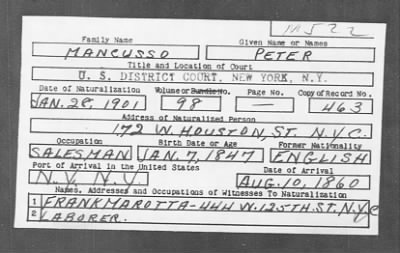 M522
Family Name Given Name or Names
MANCUSSO PETER
Title and Location of Court
U. S. DISTRICT COURT, NEW YORK, N.Y.
Date of Naturalization Volume or Bundle No. Page No. Copy of Record No.
JAN. 28, 1901 98 — 463
Address of Naturalized Person
172 W. HOUSTON, ST. N.Y.C.
Occupation Birth Date or Age Former Nationality
SALESMAN JAN. 7, 1847 ENGLISH
Port of Arrival in the United States Date of Arrival
N.Y. N.Y AUG. 10, 1860
Names, Addresses and Occupations of Witnesses To Naturalization
1 FRANK MAROTTA-444 W. 125TH. ST. N.Y.C
2 LABORER.